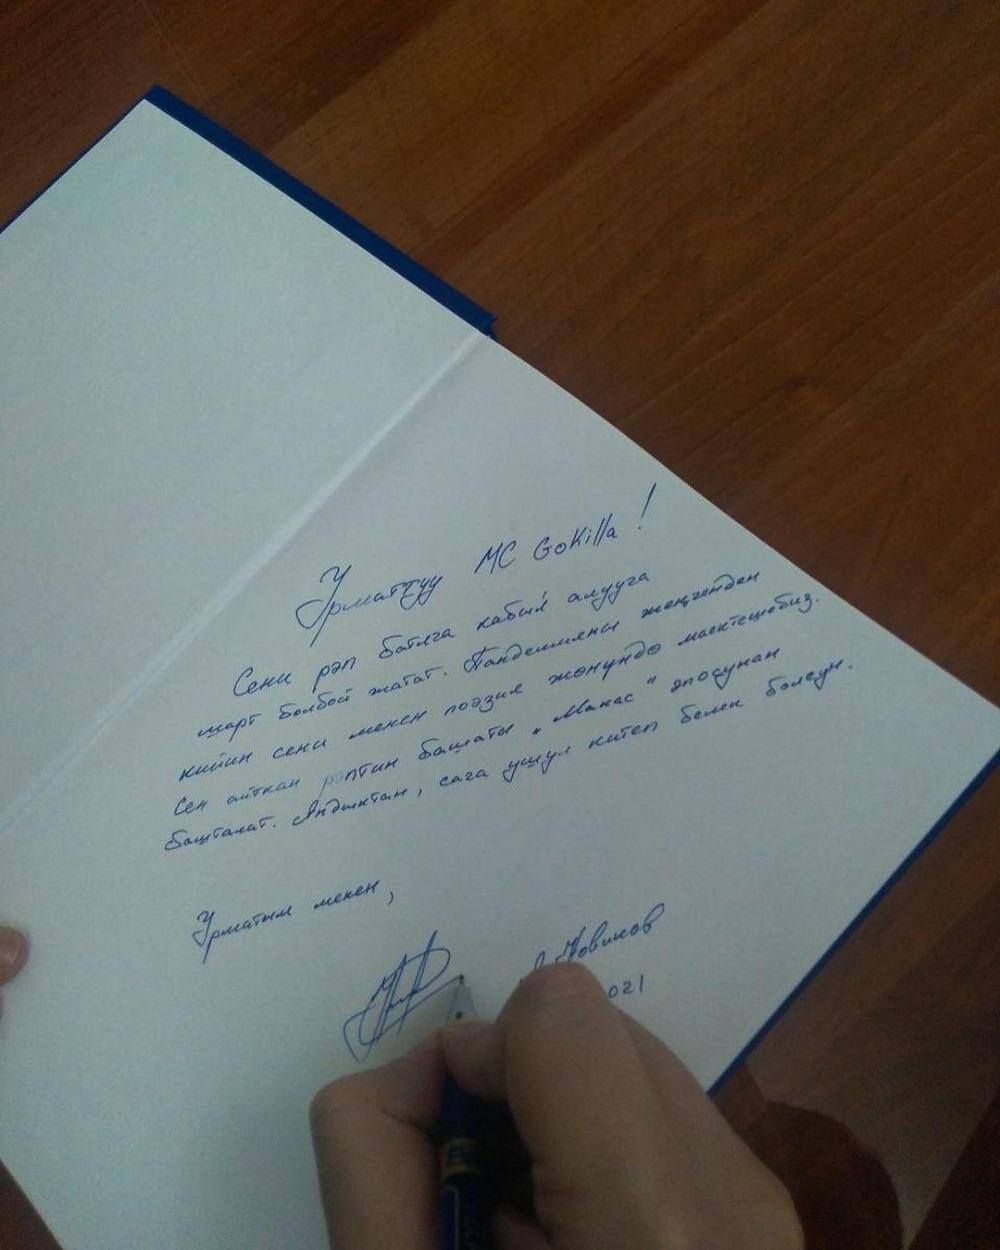 Урматтуу MC GoKilla!
Сени рэп батлга кабыл алууга
шарт болбой жатат. Пандемияны жеңгенден
кийин сени менен поэзия жөнүндө маектешебиз.
Сен айткан рэптин башаты „Манас" эпосунан
башталат. Андыктан, сага ушул китеп белек болсун.
Урматым менен,
Новиков
021